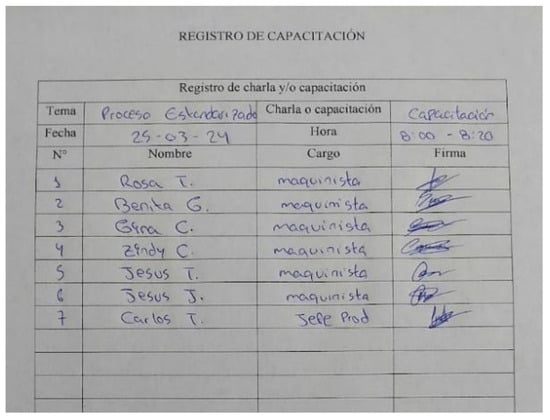 REGISTRO DE CAPACITACIÓN
Registro de charla y/o capacitación
Tema Proceso Estandarizado Charla o capacitación Capacitación
Fecha 25-03-24 Hora 8:00 - 8:20
N° Nombre Cargo Firma
1 Rosa T. maquinista
2 Benita G. maquinista
3 Gina C. maquinista
4 Zindy C. maquinista
5 Jesus T. maquinista
6 Jesus J. maquinista
7 Carlos T. Jefe Prod